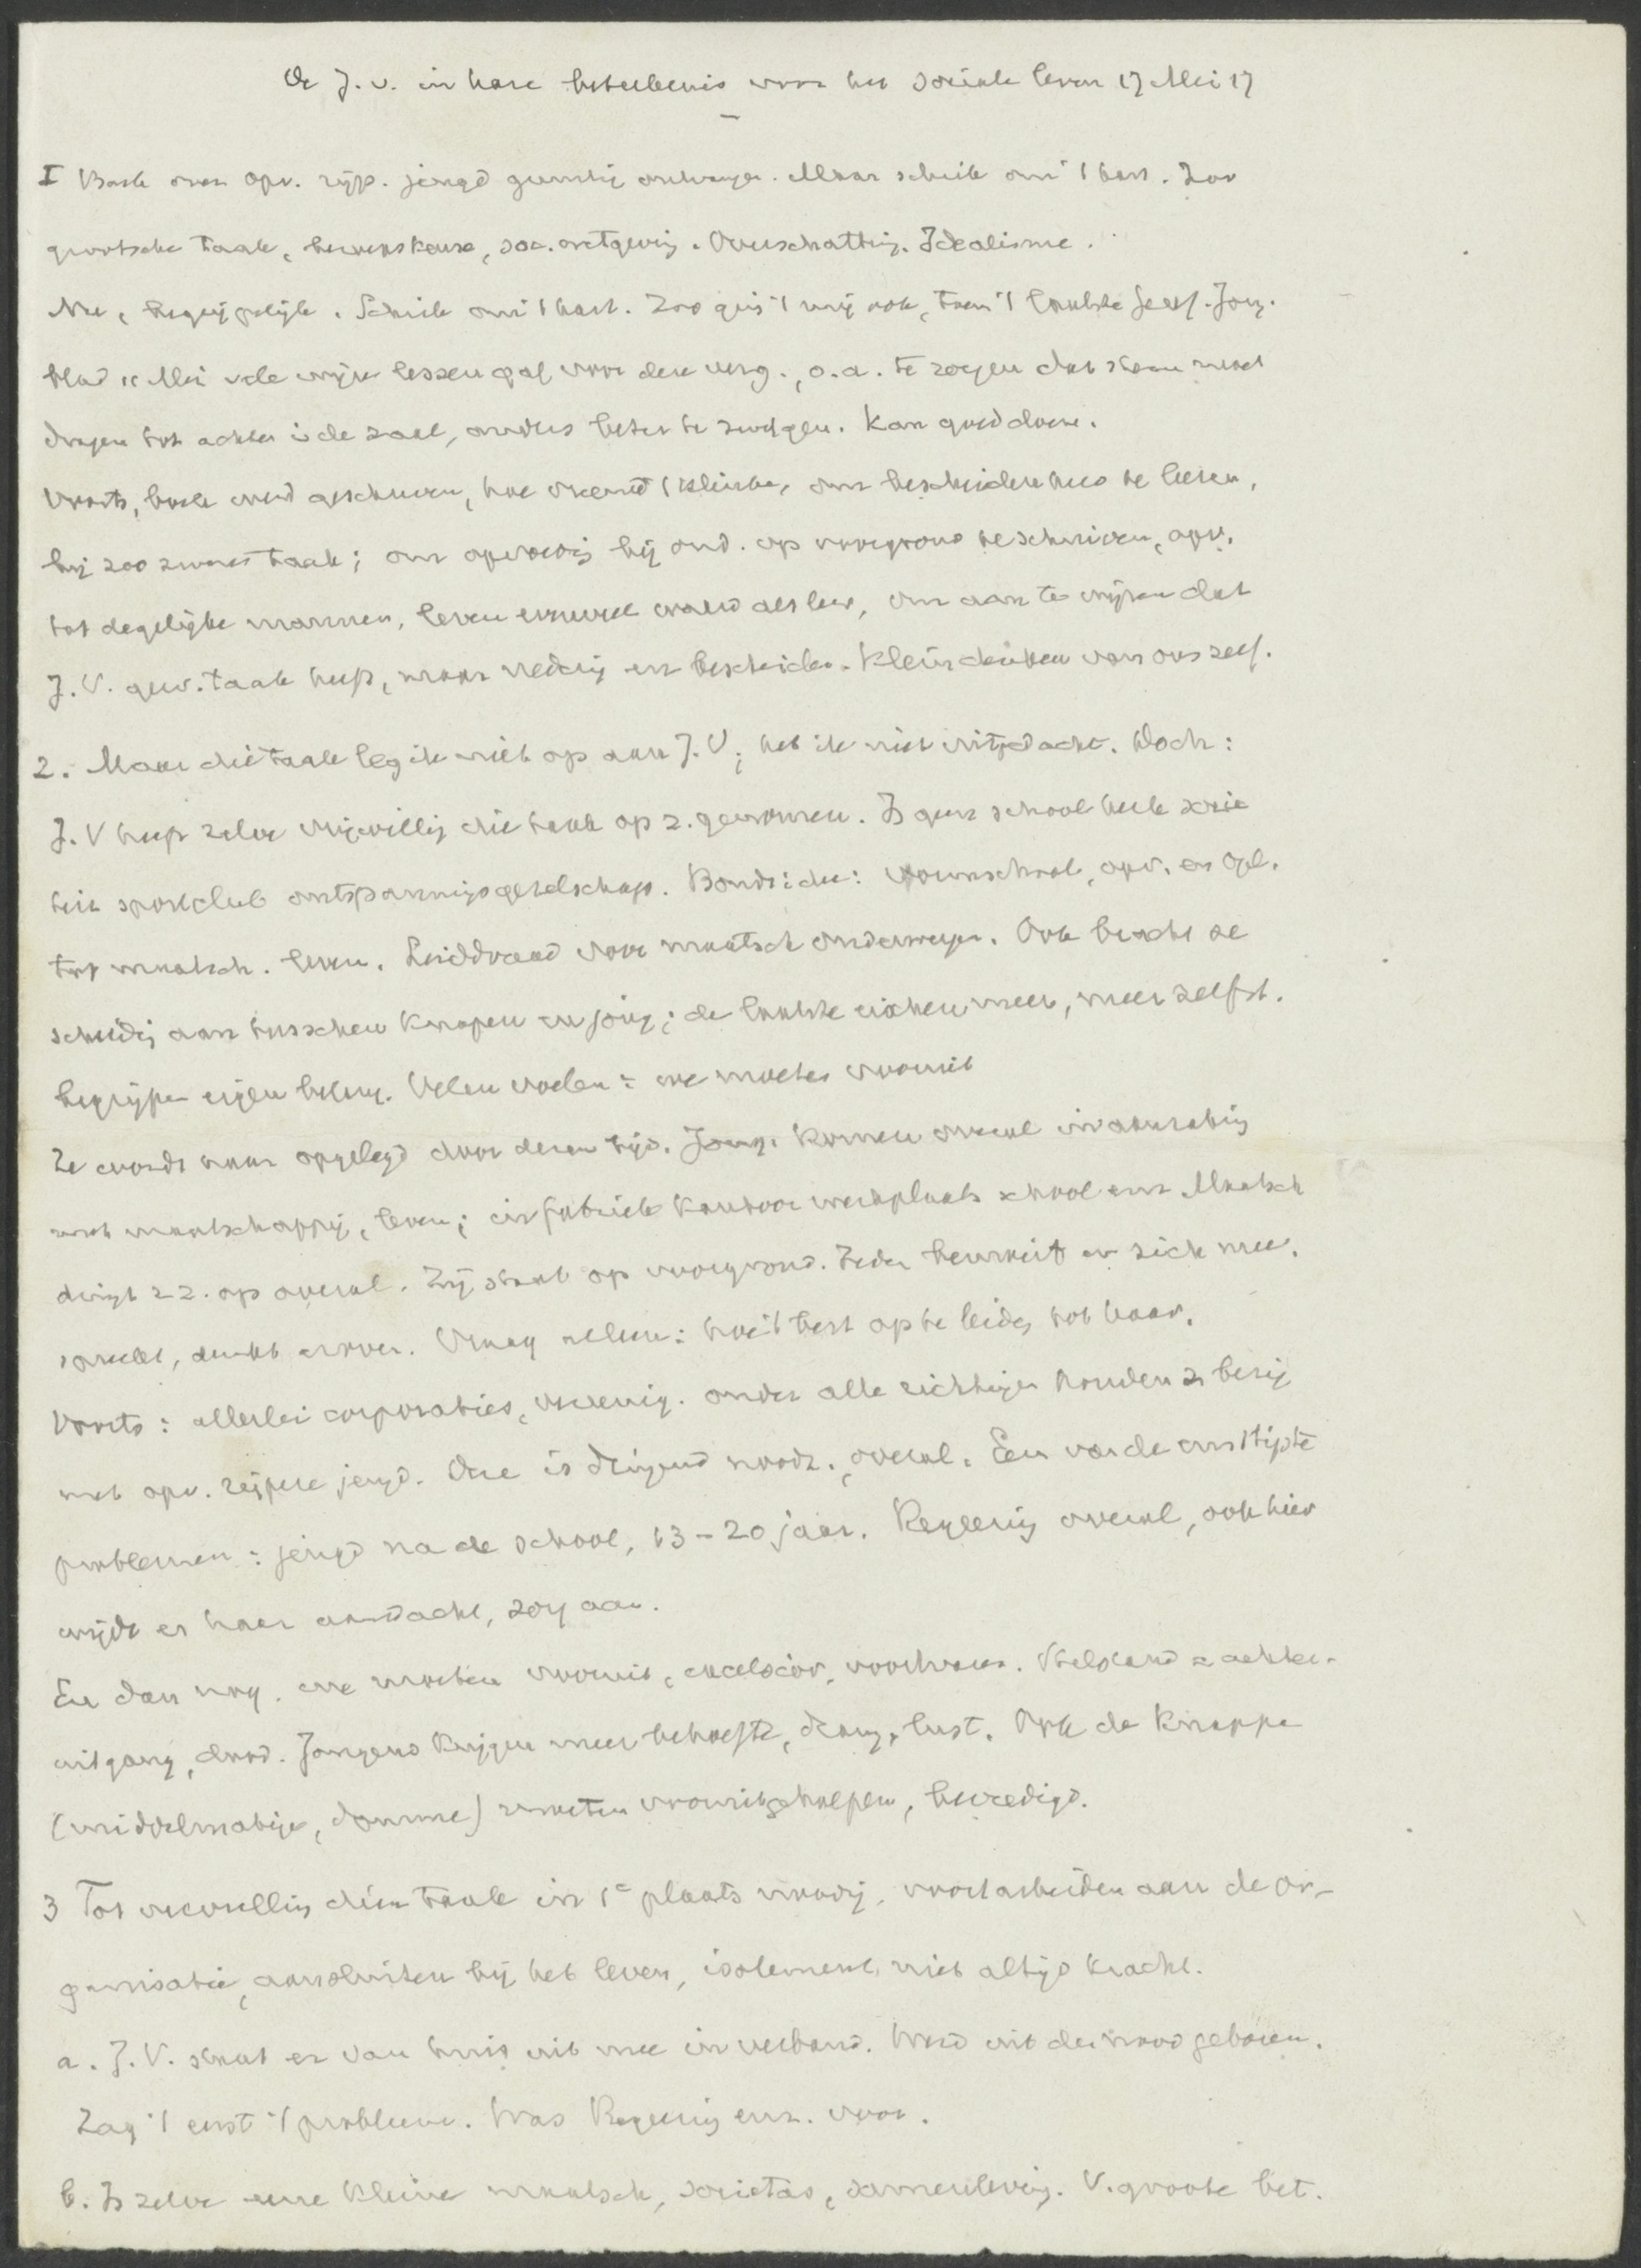 De J.V. in hare beteekenis voor het sociale leven 17 Mei 17
I Boek over opv. rijp. jeugd gunstig ontvangen. Maar schrik om 't hart. Zoo
grootsche taak, beroepskeuze, soc. wetgeving. Overschatting. Idealisme.
Nu, begrijpelijk. Schrik om 't hart. Zoo ging 't mij ook, toen 't laatste Geref. Jong.
blad 11 Mei vele wijze lessen gaf voor deze verg., o.a. te zorgen dat stem moet
dragen tot achter i de zaal, anders beter te zwijgen. Kan goed doen.
Voorts, boek werd geschreven, hoe vreemd 't klinke, om bescheidenheid te leeren,
bij zoo zware taak; om opvoeding bij ond. op voorgrond te schuiven, opv.
tot degelijke mannen, leven evenveel waard als leer, om aan te wijzen dat
J.V. gew. taak heeft, maar nederig en bescheiden. Klein denken van ons zelf.
2. Maar die taak leg ik niet op aan J.V., heb ik niet uitgedacht. Doch:
J.V heeft zelve vrijwillig die taak op z. genomen. Is geen school kerk socie
teit sportclub ontspanningsgezelschap. Bonds: idee: vormschool, opv. en opl.
tot maatsch. leven. Leiddraad voor maatsch onderwerpen. Ook bracht ze
scheiding aan tusschen knapen en jong; de laatste eischen meer, meer zelfst.
begrijpen eigen belang. Velen voelen: we moeten vooruit
Ze wordt haar opgelegd door dezen tijd. Jong. komen overal in aanraking
met maatschappij, leven; in fabriek kantoor werkplaats school enz Maatsch
dringt z. op overal. Zij staat op voorgrond. Ieder bemoeit er zich mee,
spreekt, denkt erover. Vraag alleen: hoe 't best op te leiden tot haar.
Voorts: allerlei corporaties, vereenig. onder alle richtingen houden z bezig
met opv. rijpere jeugd. Deze is dringend noodz., overal. Een van de ernstigste
problemen: jeugd na de school, 13-20 jaar. Regeering overal, ook hier
wijdt er haar aandacht, zorg aan.
En dan nog. we moeten vooruit, excelsior, voorwaarts. Stilstand = achter-
uitgang, dood. Jongens krijgen meer behoefte, drang, lust. Ook de knappe
(middelmatige, domme) moeten vooruitgeholpen, bevredigd.
3 Tot vervulling dier taak in 1e plaats noodig. voortarbeiden aan de or-
ganisatie, aansluiten bij het leven, isolement niet altijd kracht.
a. J.V. staat er van huis uit mee in verband. Werd uit den nood geboren.
Zag 't eerst 't probleem. Was Regeering enz. voor.
b. Is zelve eene kleine maatsch, societas, samenleving. V. groote bet.